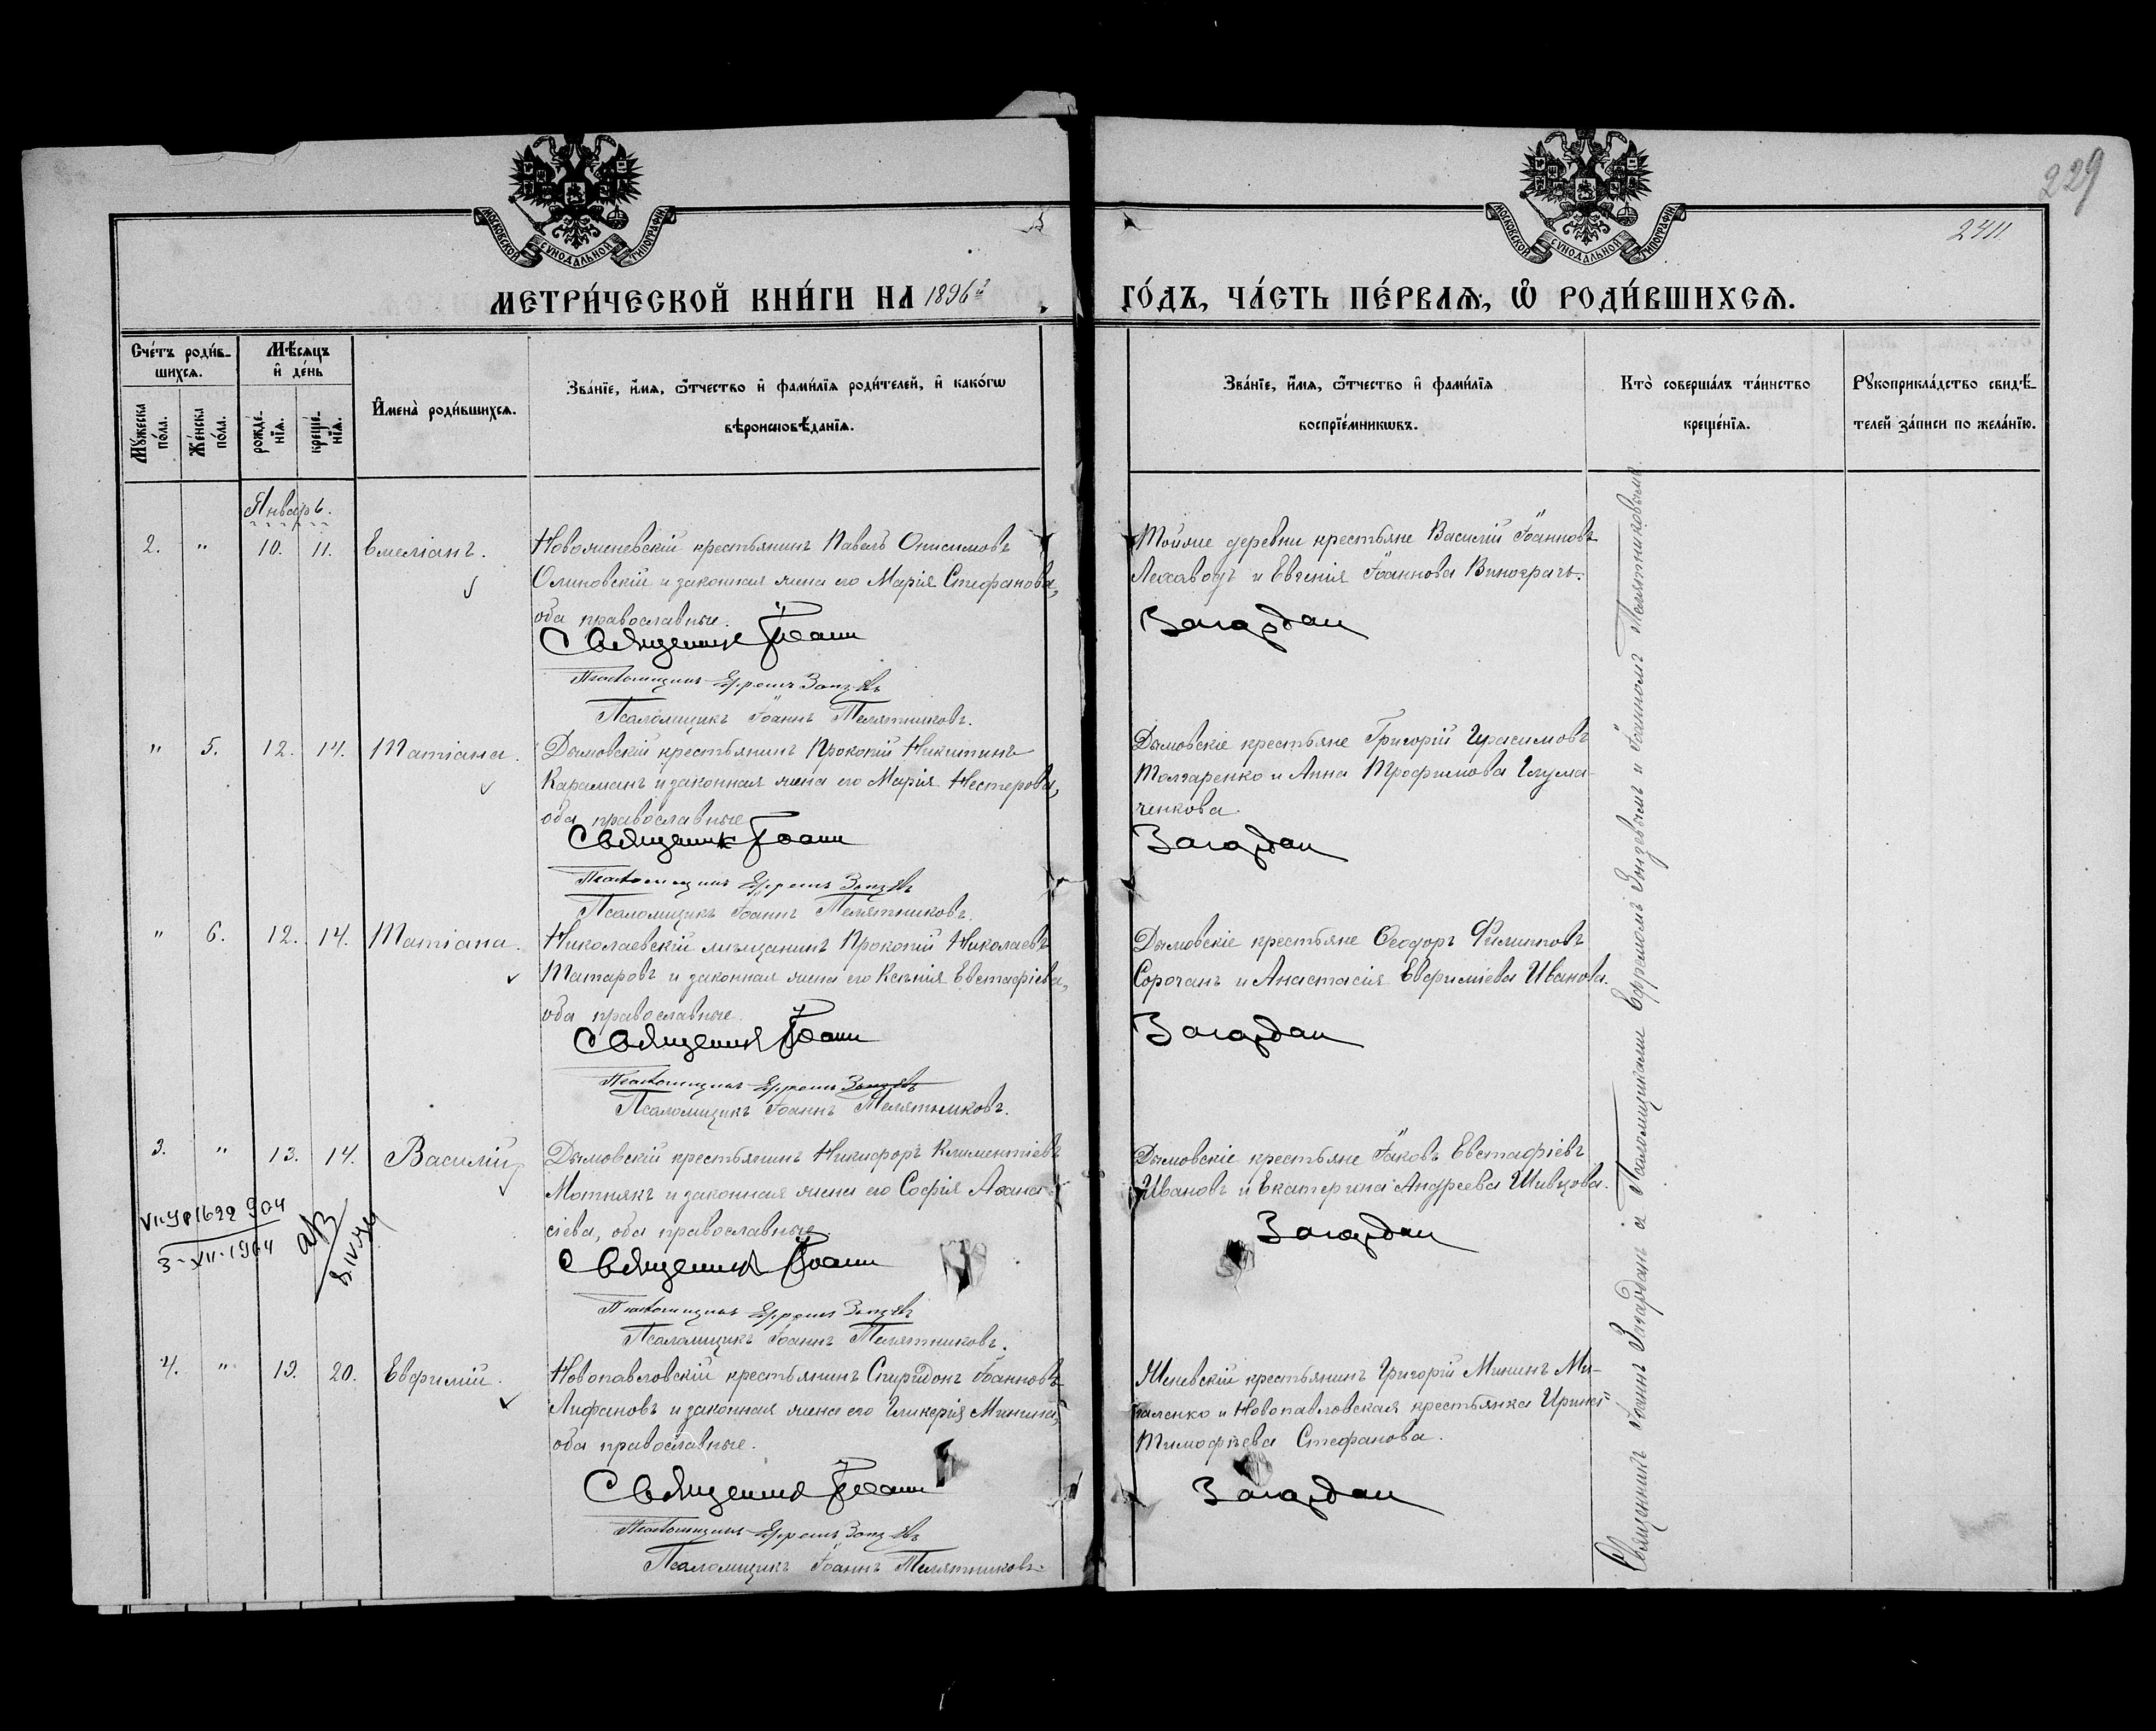 229
2411.
МОСКОВСКОЙ СУНОДАЛЬНОЙ ТИПОГРАФІИ
МОСКОВСКОЙ СУНОДАЛЬНОЙ ТИПОГРАФІИ
МЕТРИ́ЧЕСКОЙ КНИ́ГИ НА 1896й
ГО́ДЪ, ЧА́СТЬ ПЕ́РВАѦ, Ѡ РОДИ́ВШИХСѦ.
Сче́тъ роди́вшихсѧ.
Мꙋ́жеска по́ла.
Же́нска по́ла.
Мѣ́сѧцъ и҆ де́нь
рожде́нїѧ.
креще́нїѧ.
И҆мена̀ роди́вшихсѧ.
Зва́нїе, и҆́мѧ, ѻ҆́тчество и҆ фами́лїѧ роди́телей, и҆ како́гѡ
вѣроисповѣ́данїѧ.
Зва́нїе, и҆́мѧ, ѻ҆́тчество и҆ фами́лїѧ
воспрїе́мникѡвъ.
Кто̀ соверша́лъ та́инство
креще́нїѧ.
Рꙋкоприкла́дство свидѣ́-
телей за́писи по жела́нїю.
Январь.
2. " 10. 11. Емеліанъ.
Новоженевскій крестьянинъ Павелъ Онисимовъ
Олиновскій и законная жена его Марія Стефанова,
оба православные.
Священникъ Іоанн
Псаломщикъ Ефремъ
Псаломщикъ Іоаннъ Телятниковъ.
Тойже деревни крестьяне Василій Іоанновъ
и Евгенія Іоаннова
Загардан
" 5. 12. 14. Татіана.
Дымовскій крестьянинъ Прокопій Никитинъ
Караманъ и законная жена его Марія Нестерова,
оба православные
Священник Іоанн
Псаломщикъ Ефремъ
Псаломщикъ Іоаннъ Телятниковъ.
Дымовскіе крестьяне Григорій Герасимовъ
и Анна Трофимова
ченкова.
Загардан
" 6. 12. 14. Татіана.
Николаевскій мѣщанинъ Прокопій Николаевъ
Татаровъ и законная жена его Ксенія Евстафіева,
оба православные.
Священник Іоанн
Псаломщикъ Ефремъ
Псаломщикъ Іоаннъ Телятниковъ.
Дымовскіе крестьяне Ѳеодоръ Филипповъ
Сорочанъ и Анастасія Евфиміева Иванова.
Загардан
3. " 13. 14. Василій
Дымовскій крестьянинъ Никифоръ Климентіевъ
Мотнякъ и законная жена его Софія Аѳана-
сіева, оба православные
Священник Іоанн
Псаломщикъ Ефремъ
Псаломщикъ Іоаннъ Телятниковъ.
Дымовскіе крестьяне Іаковъ Евстафіевъ
Ивановъ и Екатерина Андреева Шивцова.
Загардан
904
3-XII-1904
4. " 13. 20. Евфимій.
Новопавловскій крестьянинъ Спиридонъ Іоанновъ
Лифановъ и законная жена его Гликерія Минина,
оба православные.
Священник Іоанн
Псаломщикъ Ефремъ
Псаломщикъ Іоаннъ Телятниковъ.
Женевскій крестьянинъ Григорій Мининъ Ми-
и Новопавловская крестьянка Ирина
Тимофѣева Стефанова.
Загардан
Священникъ Іоаннъ Загарданъ а Псаломщиками Ефремомъ и Іоанномъ Телятниковымъ.